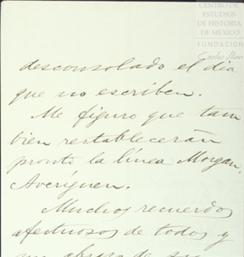 CENTRO DE
ESTUDIOS
DE HISTORIA
DE MEXICO
FUNDACIÓN
desconsolado el dia
que no escriben.
Me figuro que tam
bien restablecerán
pronto la linea Morgan.
Averíguen.
Muchos recuerdos
afectuosos de todos y
un abrazo de su